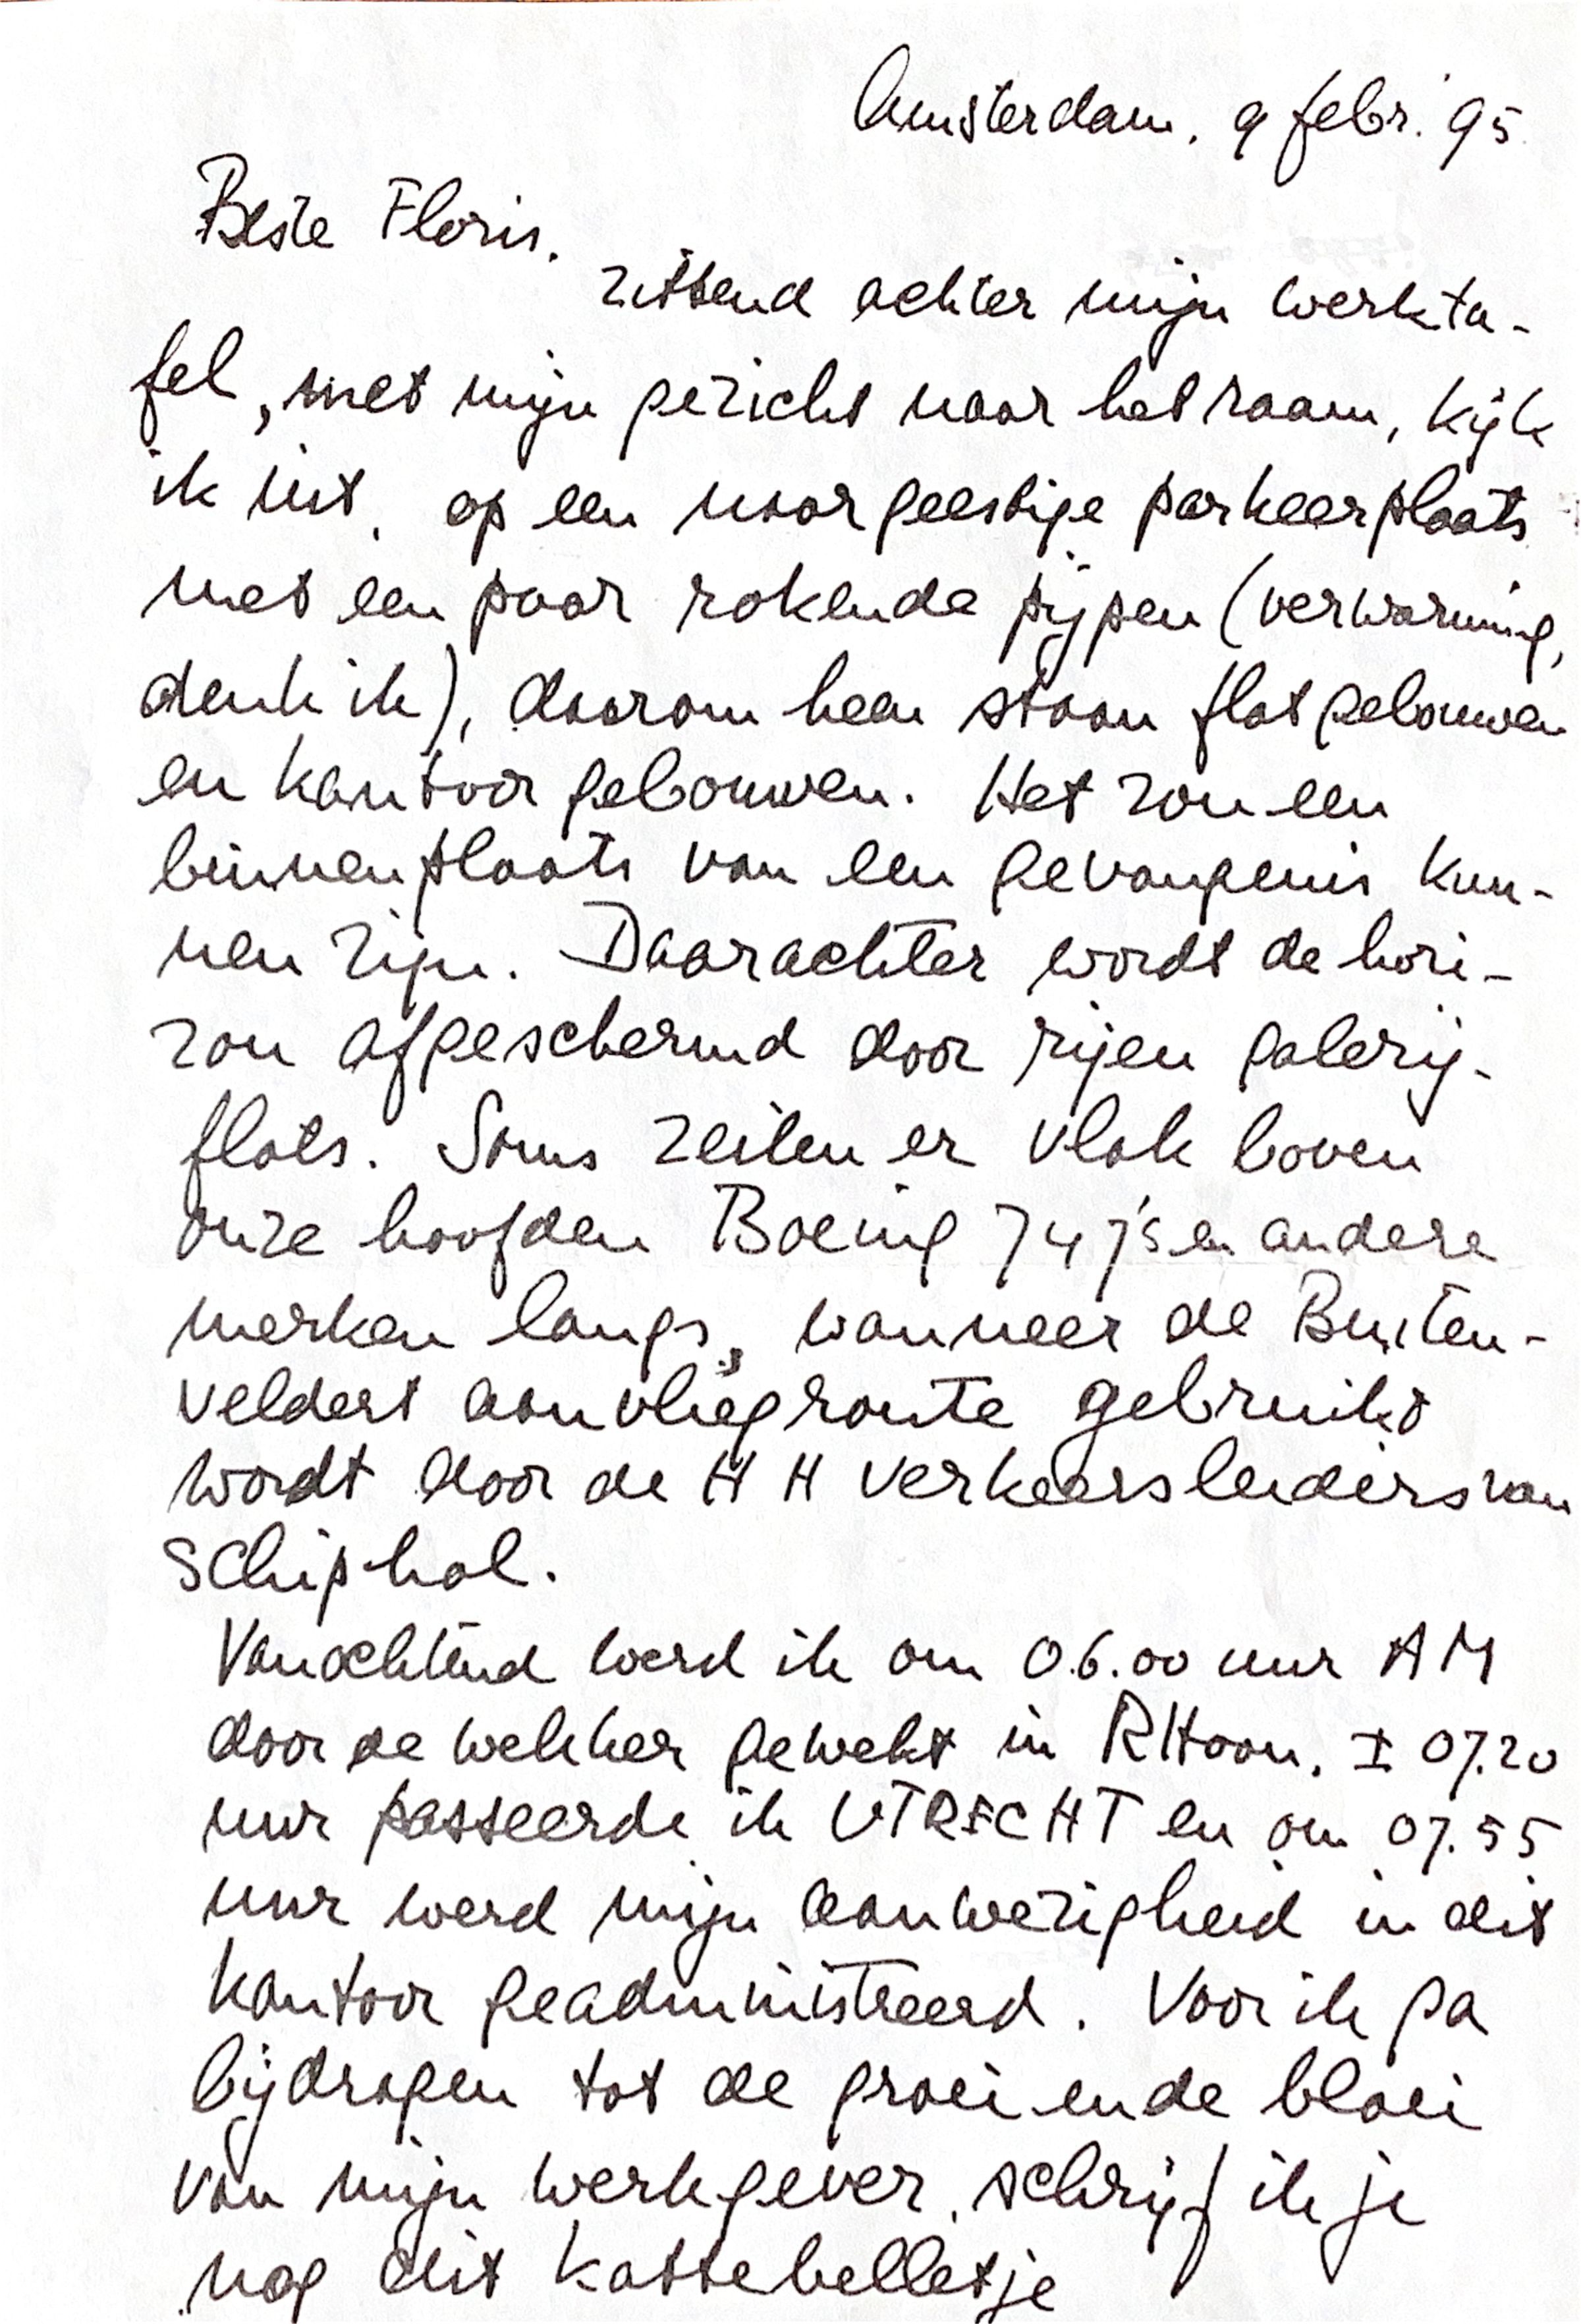 Amsterdam, 9 febr. '95
Beste Floris,
zittend achter mijn werkta-
fel, met mijn gezicht naar het raam, kijk
ik uit, op een naargeestige parkeerplaats
met een paar rokende pijpen (verwarming,
denk ik), daarom heen staan flatgebouwen
en kantoorgebouwen. Het zou een
binnenplaats van een gevangenis kun-
nen zijn. Daarachter wordt de hori-
zon afgeschermd door rijen galerij-
flats. Soms zeilen er vlak boven
onze hoofden Boeing 747's en andere
merken langs, wanneer de Buiten-
veldert aanvliegroute gebruikt
wordt door de HH verkeersleiders van
Schiphol.
Vanochtend werd ik om 06.00 uur AM
door de wekker gewekt in RHoon. ± 07.20
uur passeerde ik UTRECHT en om 07.55
uur werd mijn aanwezigheid in dit
kantoor geadministreerd. Voor ik ga
bijdragen tot de groeiende bloei
van mijn werkgever, schrijf ik je
nog dit kattebelletje